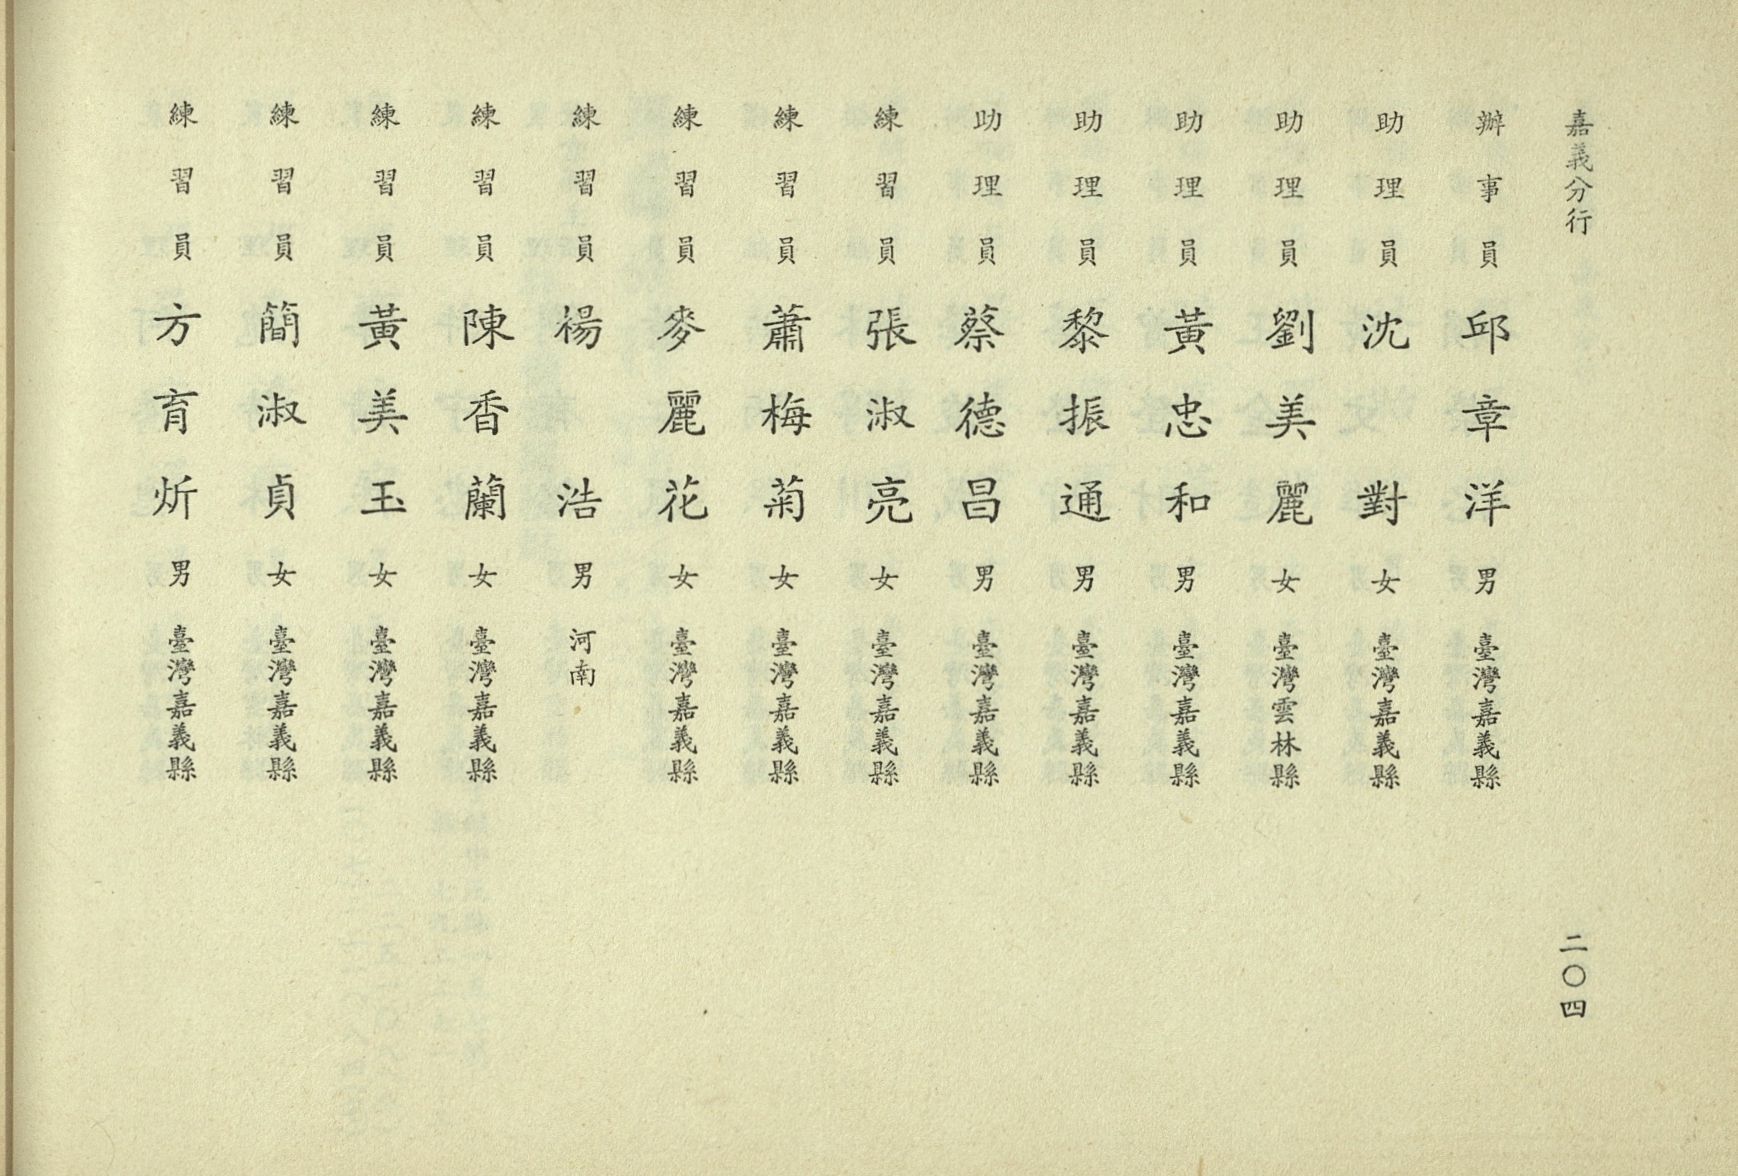 嘉義分行
辦事員 邱章洋 男 臺灣嘉義縣
助理員 沈對 女 臺灣嘉義縣
助理員 劉美麗 女 臺灣雲林縣
助理員 黃忠和 男 臺灣嘉義縣
助理員 黎振通 男 臺灣嘉義縣
助理員 蔡德昌 男 臺灣嘉義縣
練習員 張淑亮 女 臺灣嘉義縣
練習員 蕭梅菊 女 臺灣嘉義縣
練習員 麥麗花 女 臺灣嘉義縣
練習員 楊浩 男 河南
練習員 陳香蘭 女 臺灣嘉義縣
練習員 黃美玉 女 臺灣嘉義縣
練習員 簡淑貞 女 臺灣嘉義縣
練習員 方育炘 男 臺灣嘉義縣
二〇四